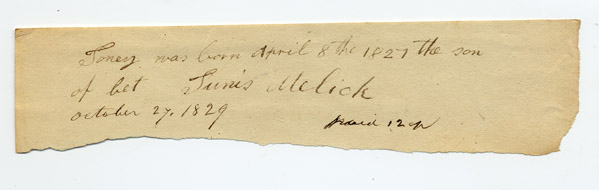 Toney was born April 8 the 1827 the son
of bet Tunis Melick
october 27, 1829
paid 12